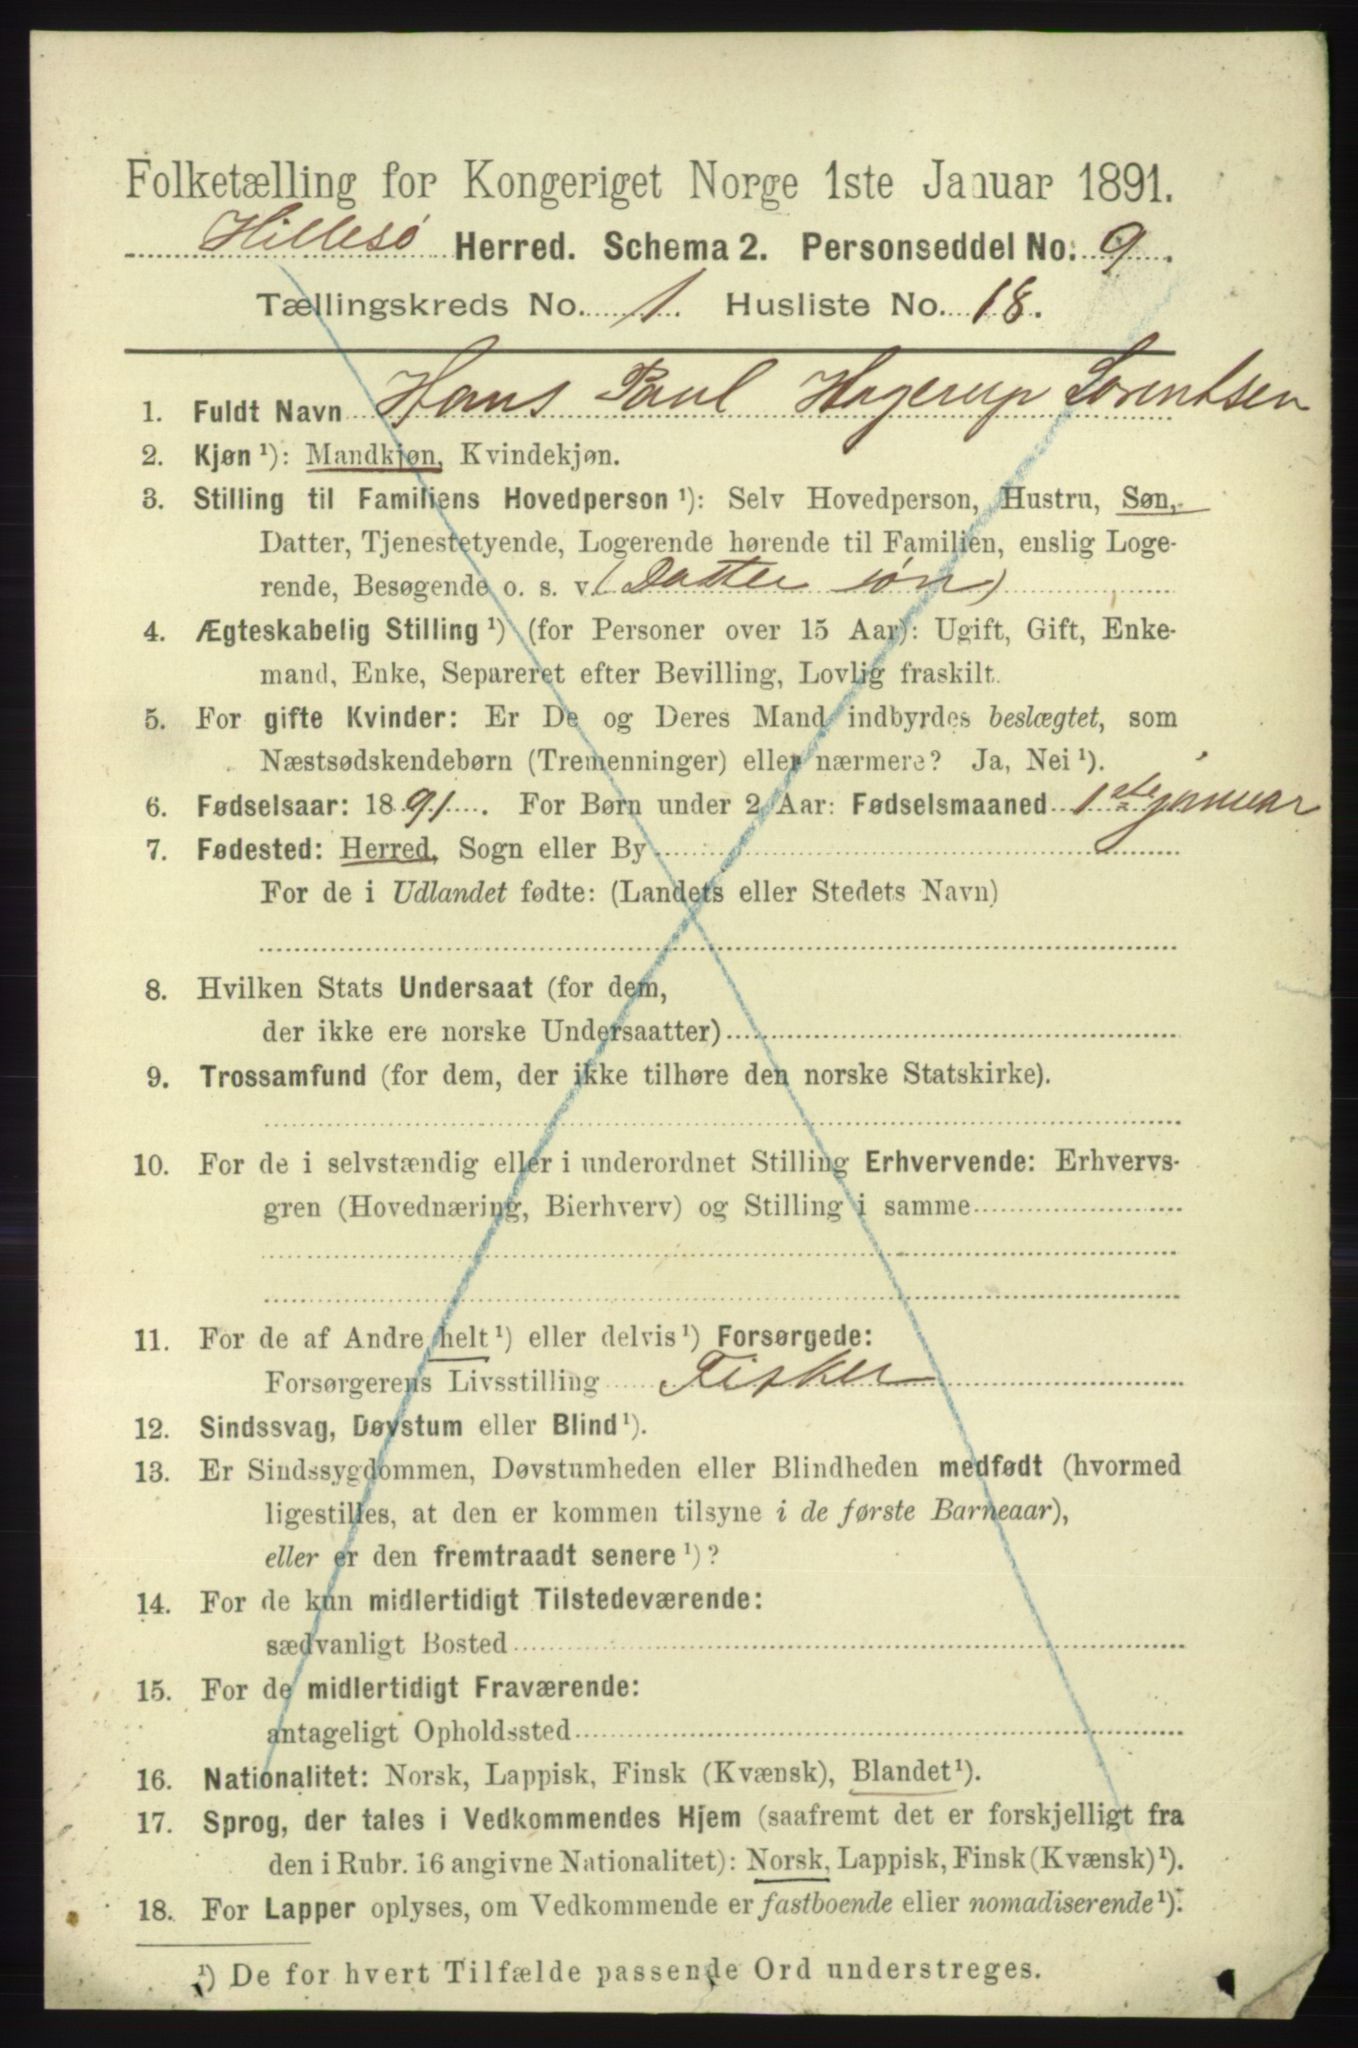 Folketælling for Kongeriget Norge 1ste Januar 1891.
Hillesø Herred. Schema 2. Personseddel No. 9.
Tællingskreds No. 1. Husliste No. 18.
1. Fuldt Navn Hans Paul Hagerup Lorentsen
2. Kjøn ¹): Mandkjøn, Kvindekjøn.
3. Stilling til Familiens Hovedperson ¹): Selv Hovedperson, Hustru, Søn,
Datter, Tjenestetyende, Logerende hørende til Familien, enslig Loge-
rende, Besøgende o. s. v. (Datter søn)
4. Ægteskabelig Stilling ¹) (for Personer over 15 Aar): Ugift, Gift, Enke-
mand, Enke, Separeret efter Bevilling, Lovlig fraskilt.
5. For gifte Kvinder: Er De og Deres Mand indbyrdes beslægtet, som
Næstsødskendebørn (Tremenninger) eller nærmere? Ja, Nei ¹).
6. Fødselsaar: 1891. For Børn under 2 Aar: Fødselsmaaned 1ste januar
7. Fødested: Herred, Sogn eller By
For de i Udlandet fødte: (Landets eller Stedets Navn)
8. Hvilken Stats Undersaat (for dem,
der ikke ere norske Undersaatter)
9. Trossamfund (for dem, der ikke tilhøre den norske Statskirke).
10. For de i selvstændig eller i underordnet Stilling Erhvervende: Erhvervs-
gren (Hovednæring, Bierhverv) og Stilling i samme
11. For de af Andre helt ¹) eller delvis ¹) Forsørgede:
Forsørgerens Livsstilling Fisker
12. Sindssvag, Døvstum eller Blind ¹).
13. Er Sindssygdommen, Døvstumheden eller Blindheden medfødt (hvormed
ligestilles, at den er kommen tilsyne i de første Barneaar),
eller er den fremtraadt senere ¹)?
14. For de kun midlertidigt Tilstedeværende:
sædvanligt Bosted
15. For de midlertidigt Fraværende:
antageligt Opholdssted
16. Nationalitet: Norsk, Lappisk, Finsk (Kvænsk), Blandet ¹).
17. Sprog, der tales i Vedkommendes Hjem (saafremt det er forskjelligt fra
den i Rubr. 16 angivne Nationalitet): Norsk, Lappisk, Finsk (Kvænsk) ¹).
18. For Lapper oplyses, om Vedkommende er fastboende eller nomadiserende ¹).
¹) De for hvert Tilfælde passende Ord understreges.